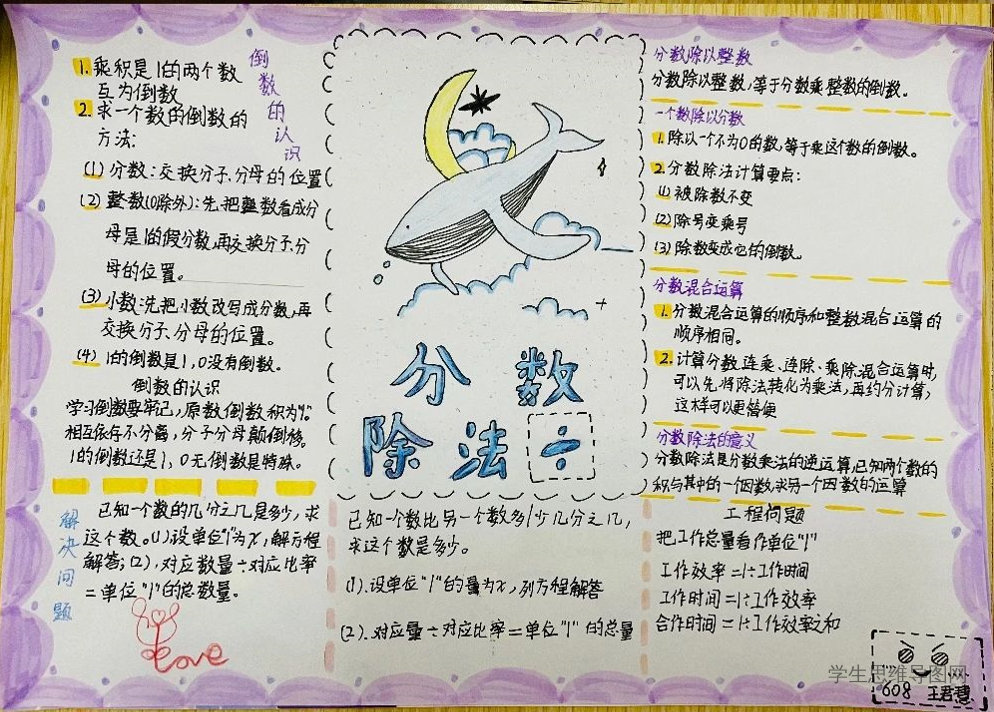 倒数的认识
1.乘积是1的两个数
互为倒数
2.求一个数的倒数的
方法:
(1)分数:交换分子、分母的位置
(2)整数(0除外):先把整数看成分
母是1的假分数,再交换分子、分
母的位置。
(3)小数:先把小数改写成分数,再
交换分子、分母的位置。
(4)1的倒数是1,0没有倒数。
倒数的认识
学习倒数要牢记,原数倒数积为1;
相互依存不分离,分子分母颠倒移。
1的倒数还是1,0无倒数是特殊。
分数
除法÷
分数除以整数
分数除以整数,等于分数乘整数的倒数。
一个数除以分数
1.除以一个不为0的数,等于乘这个数的倒数。
2.分数除法计算要点:
(1)被除数不变
(2)除号变乘号
(3)除数变成它的倒数。
分数混合运算
1.分数混合运算的顺序和整数混合运算的
顺序相同。
2.计算分数连乘、连除、乘除混合运算时,
可以先将除法转化为乘法,再约分计算,
这样可以更简便
分数除法的意义
分数除法是分数乘法的逆运算,已知两个数的
积与其中的一个因数,求另一个因数的运算
解决问题
已知一个数的几分之几是多少,求
这个数。(1)设单位"1"为x,解方程
解答;(2),对应数量÷对应比率
=单位"1"的总数量。
Love
已知一个数比另一个数多/少几分之几,
求这个数是多少。
(1).设单位"1"的量为x,列方程解答
(2).对应量÷对应比率=单位"1"的总量
工程问题
把工作总量看作单位"1"
工作效率=1÷工作时间
工作时间=1÷工作效率
合作时间=1÷工作效率之和
学生思维导图网
608 王君慧